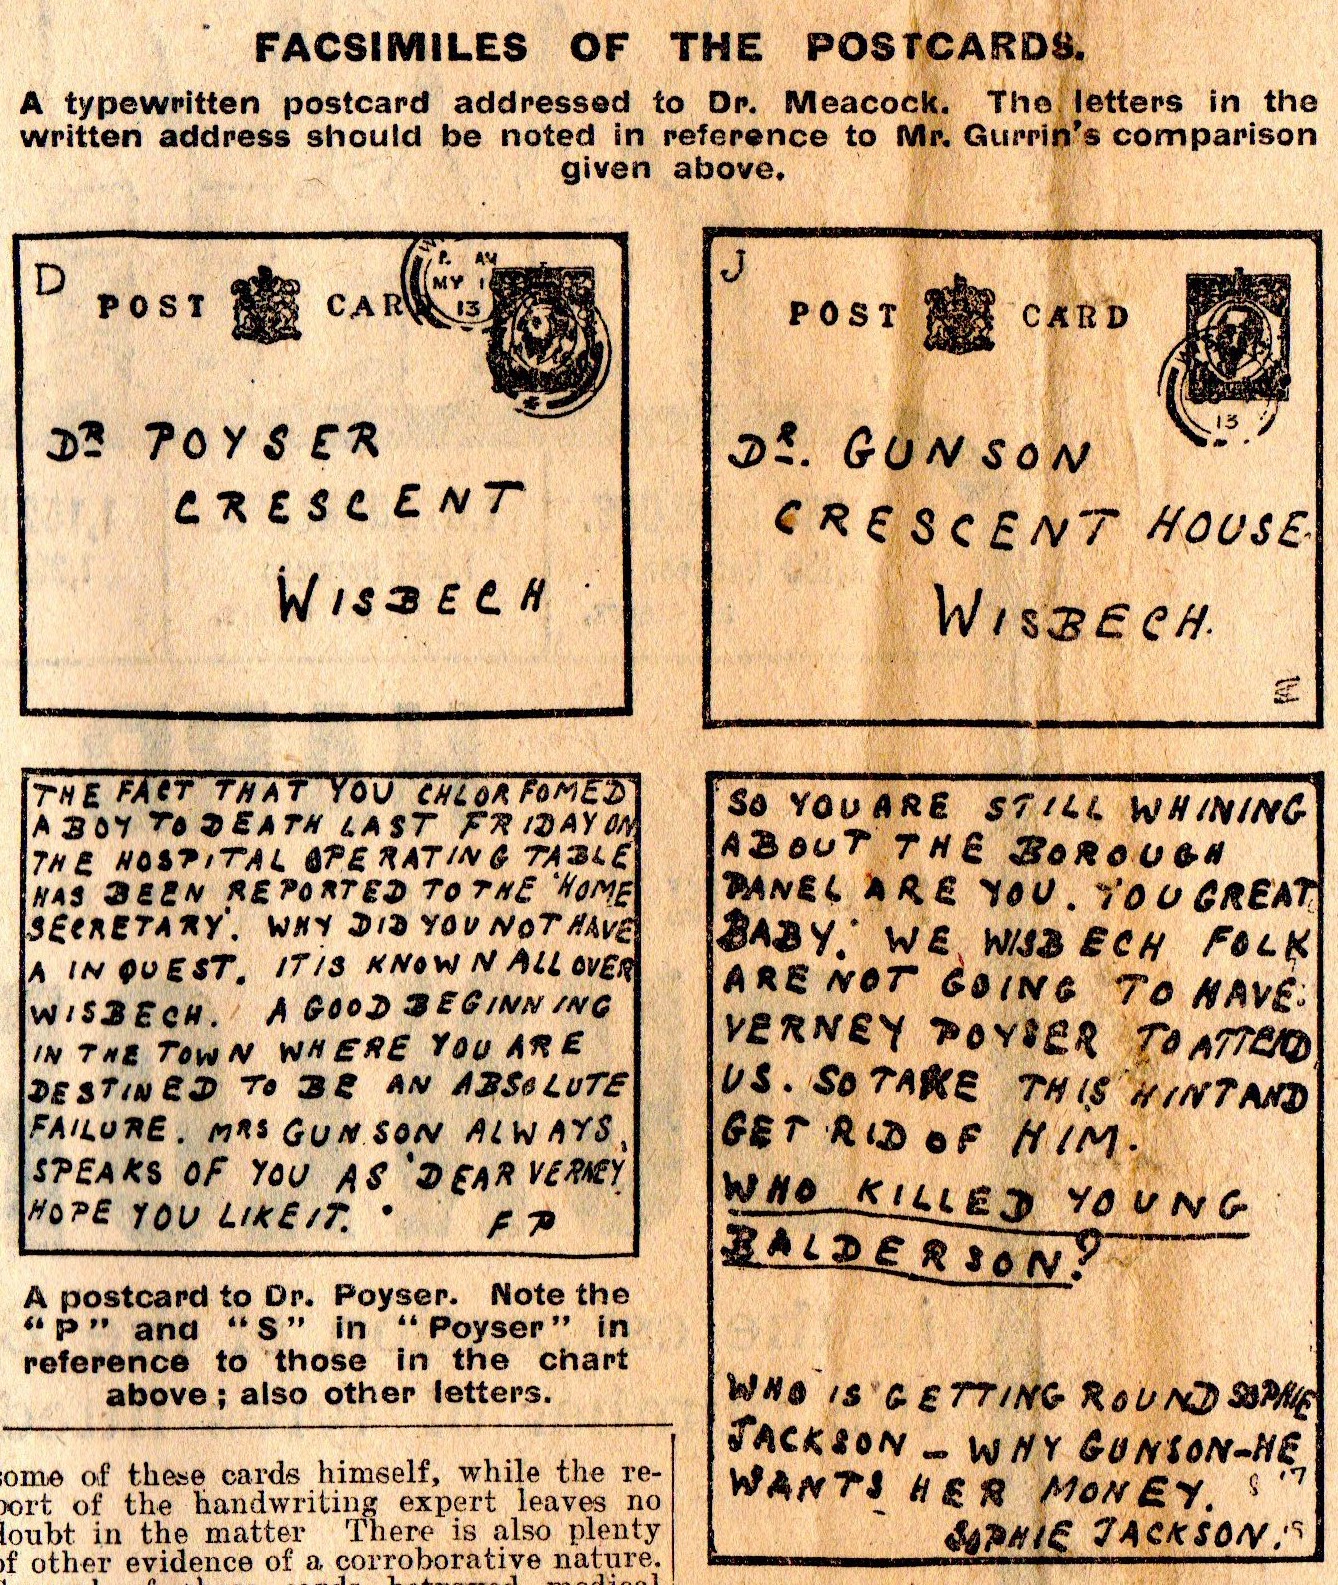 FACSIMILES OF THE POSTCARDS.
A typewritten postcard addressed to Dr. Meacock. The letters in the
written address should be noted in reference to Mr. Gurrin's comparison
given above.
D
POST CAR
AM
MY 1
13
DR POYSER
CRESCENT
WISBECH
THE FACT THAT YOU CHLORFOMED
A BOY TO DEATH LAST FRIDAY ON
THE HOSPITAL OPERATING TABLE
HAS BEEN REPORTED TO THE 'HOME
SECRETARY'. WHY DID YOU NOT HAVE
A INQUEST. IT IS KNOWN ALL OVER
WISBECH. A GOOD BEGINNING
IN THE TOWN WHERE YOU ARE
DESTINED TO BE AN ABSOLUTE
FAILURE. MRS GUNSON ALWAYS,
SPEAKS OF YOU AS 'DEAR VERNEY'
HOPE YOU LIKE IT. F P
A postcard to Dr. Poyser. Note the
"P" and "S" in "Poyser" in
reference to those in the chart
above; also other letters.
some of these cards himself, while the re-
port of the handwriting expert leaves no
doubt in the matter There is also plenty
of other evidence of a corroborative nature.
J
POST CARD
13
DR. GUNSON
CRESCENT HOUSE.
WISBECH.
SO YOU ARE STILL WHINING
ABOUT THE BOROUGH
PANEL ARE YOU. YOU GREAT
BABY. WE WISBECH FOLK
ARE NOT GOING TO HAVE
VERNEY POYSER TO ATTEND
US. SO TAKE THIS HINT AND
GET RID OF HIM.
WHO KILLED YOUNG
BALDERSON?
WHO IS GETTING ROUND SOPHIE
JACKSON – WHY GUNSON–HE
WANTS HER MONEY.
SOPHIE JACKSON.